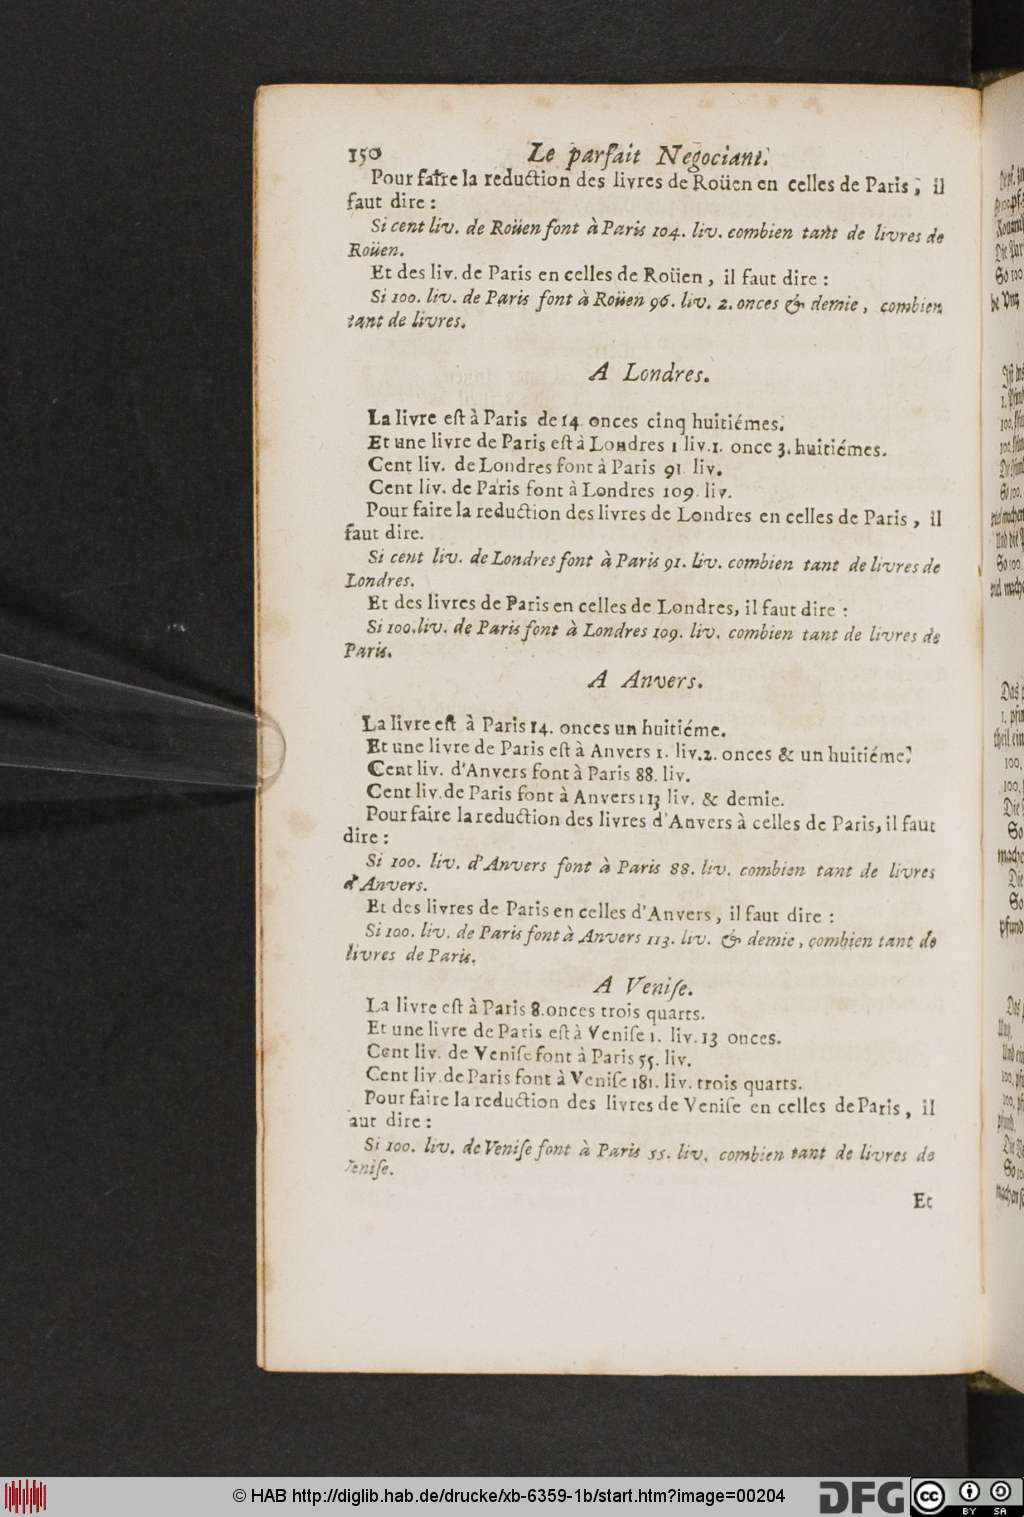 150 Le parfait Negociant.
Pour faire la reduction des livres de Roüen en celles de Paris, il
faut dire :
Si cent liv. de Roüen font à Paris 104. liv. combien tant de livres de
Roüen.
Et des liv. de Paris en celles de Roüen, il faut dire :
Si 100. liv. de Paris font à Roüen 96. liv. 2. onces & demie, combien
tant de livres.
A Londres.
La livre eſt à Paris de 14 onces cinq huitiémes.
Et une livre de Paris eſt à Londres 1 liv. 1. once 3. huitiémes.
Cent liv. de Londres font à Paris 91 liv.
Cent liv. de Paris font à Londres 109. liv.
Pour faire la reduction des livres de Londres en celles de Paris, il
faut dire.
Si cent liv. de Londres font à Paris 91. liv. combien tant de livres de
Londres.
Et des livres de Paris en celles de Londres, il faut dire :
Si 100. liv. de Paris font à Londres 109. liv. combien tant de livres de
Paris.
A Anvers.
La livre eſt à Paris 14. onces un huitiéme.
Et une livre de Paris eſt à Anvers 1. liv. 2. onces & un huitiéme.
Cent liv. d'Anvers font à Paris 88. liv.
Cent liv. de Paris font à Anvers 113 liv. & demie.
Pour faire la reduction des livres d'Anvers à celles de Paris, il faut
dire :
Si 100. liv. d'Anvers font à Paris 88. liv. combien tant de livres
d'Anvers.
Et des livres de Paris en celles d'Anvers, il faut dire :
Si 100. liv. de Paris font à Anvers 113. liv. & demie, combien tant de
livres de Paris.
A Veniſe.
La livre eſt à Paris 8. onces trois quarts.
Et une livre de Paris eſt à Veniſe 1. liv. 13 onces.
Cent liv. de Veniſe font à Paris 55. liv.
Cent liv. de Paris font à Veniſe 181. liv. trois quarts.
Pour faire la reduction des livres de Veniſe en celles de Paris, il
aut dire :
Si 100. liv. de Veniſe font à Paris 55. liv. combien tant de livres de
Veniſe.
Et
© HAB http://diglib.hab.de/drucke/xb-6359-1b/start.htm?image=00204
DFG
cc BY SA